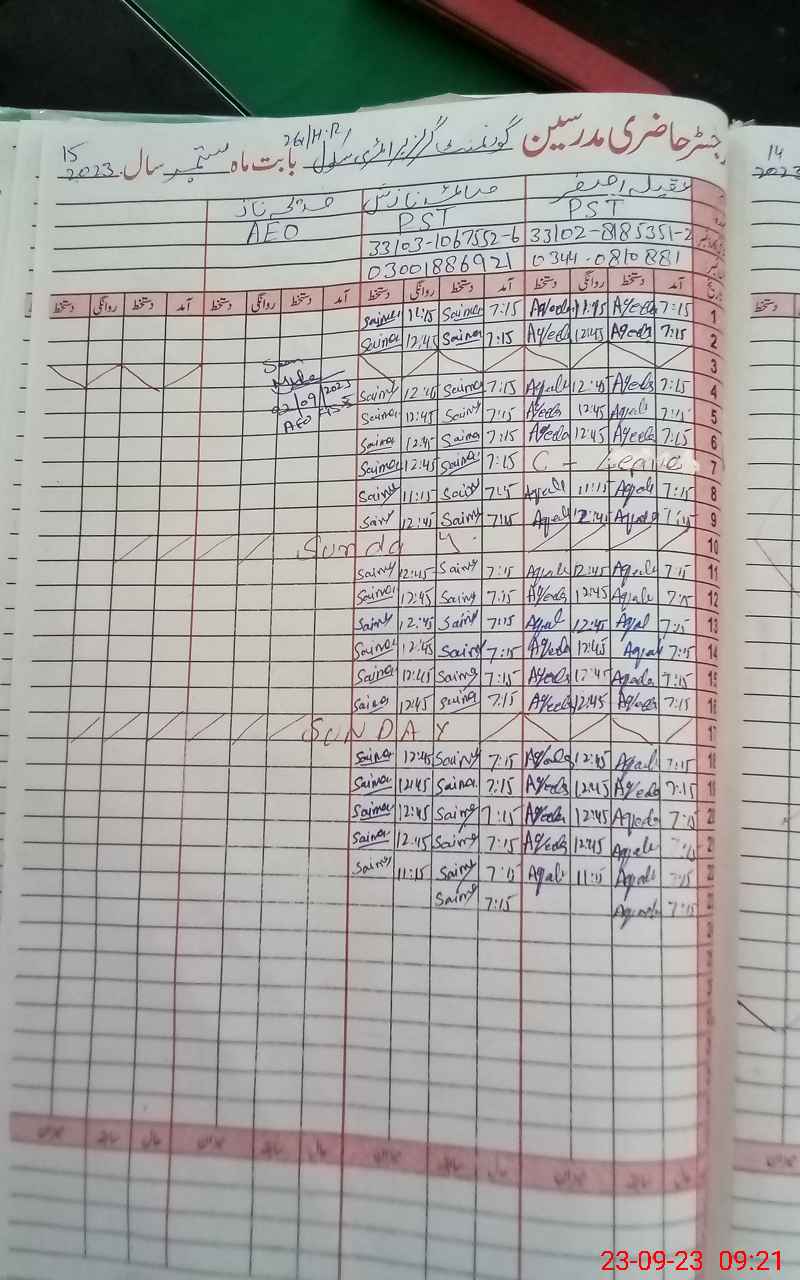 رجسٹر حاضری مدرسین گورنمنٹ گرلز پرائمری سکول بابت ماہ ستمبر سال 2023
15
14
2023
عقیلہ اصغر صائمہ نازش
PST PST AEO
33102-8185351-2 33103-1067552-6
0344-0810881 03001886921
آمد دستخط روانگی دستخط آمد دستخط روانگی دستخط آمد دستخط روانگی دستخط
1 7:15 Aqeela 11:15 Aqeela 7:15 Saima 11:15 Saima
2 7:15 Aqeela 12:45 Aqeela 7:15 Saima 12:45 Saima
3
4 7:15 Aqeela 12:45 Aqeela 7:15 Saima 12:45 Saima
02/09/2023
AEO
5 7:15 Aqeela 12:45 Aqeela 7:15 Saima 12:45 Saima
6 7:15 Aqeela 12:45 Aqeela 7:15 Saima 12:45 Saima
7 C - Leave 7:15 Saima 12:45 Saima
8 7:15 Aqeela 11:15 Aqeela 7:15 Saima 11:15 Saima
9 7:15 Aqeela 12:45 Aqeela 7:15 Saima 12:45 Saima
10 Sunday
11 7:15 Aqeela 12:45 Aqeela 7:15 Saima 12:45 Saima
12 7:15 Aqeela 12:45 Aqeela 7:15 Saima 12:45 Saima
13 7:15 Aqeela 12:45 Aqeela 7:15 Saima 12:45 Saima
14 7:15 Aqeela 12:45 Aqeela 7:15 Saima 12:45 Saima
15 7:15 Aqeela 12:45 Aqeela 7:15 Saima 12:45 Saima
16 7:15 Aqeela 12:45 Aqeela 7:15 Saima 12:45 Saima
17 SUNDAY
18 7:15 Aqeela 12:45 Aqeela 7:15 Saima 12:45 Saima
19 7:15 Aqeela 12:45 Aqeela 7:15 Saima 12:45 Saima
20 7:15 Aqeela 12:45 Aqeela 7:15 Saima 12:45 Saima
21 7:15 Aqeela 12:45 Aqeela 7:15 Saima 12:45 Saima
7:15 Aqeela 11:15 Aqeela 7:15 Saima 11:15 Saima
7:15 Aqeela 7:15 Saima
23-09-23 09:21